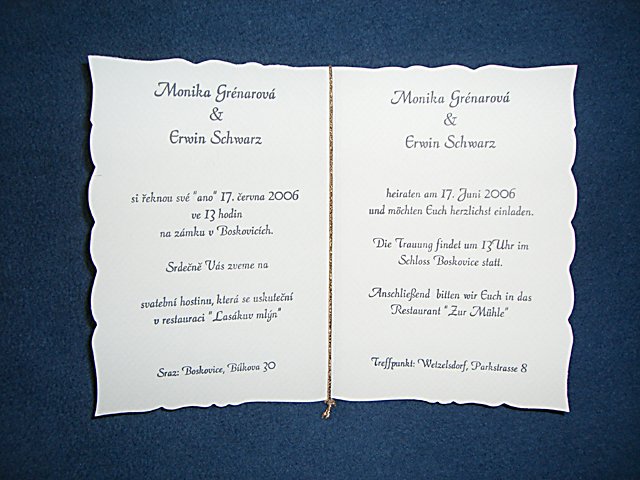 Monika Grénarová
&
Erwin Schwarz
si řeknou své "ano" 17. června 2006
ve 13 hodin
na zámku v Boskovicích.
Srdečně Vás zveme na
svatební hostinu, která se uskuteční
v restauraci "Lasákuv mlýn"
Sraz: Boskovice, Bílkova 30
Monika Grénarová
&
Erwin Schwarz
heiraten am 17. Juni 2006
und möchten Euch herzlichst einladen.
Die Trauung findet um 13 Uhr im
Schloss Boskovice statt.
Anschließend bitten wir Euch in das
Restaurant "Zur Mühle"
Treffpunkt: Wetzelsdorf, Parkstrasse 8